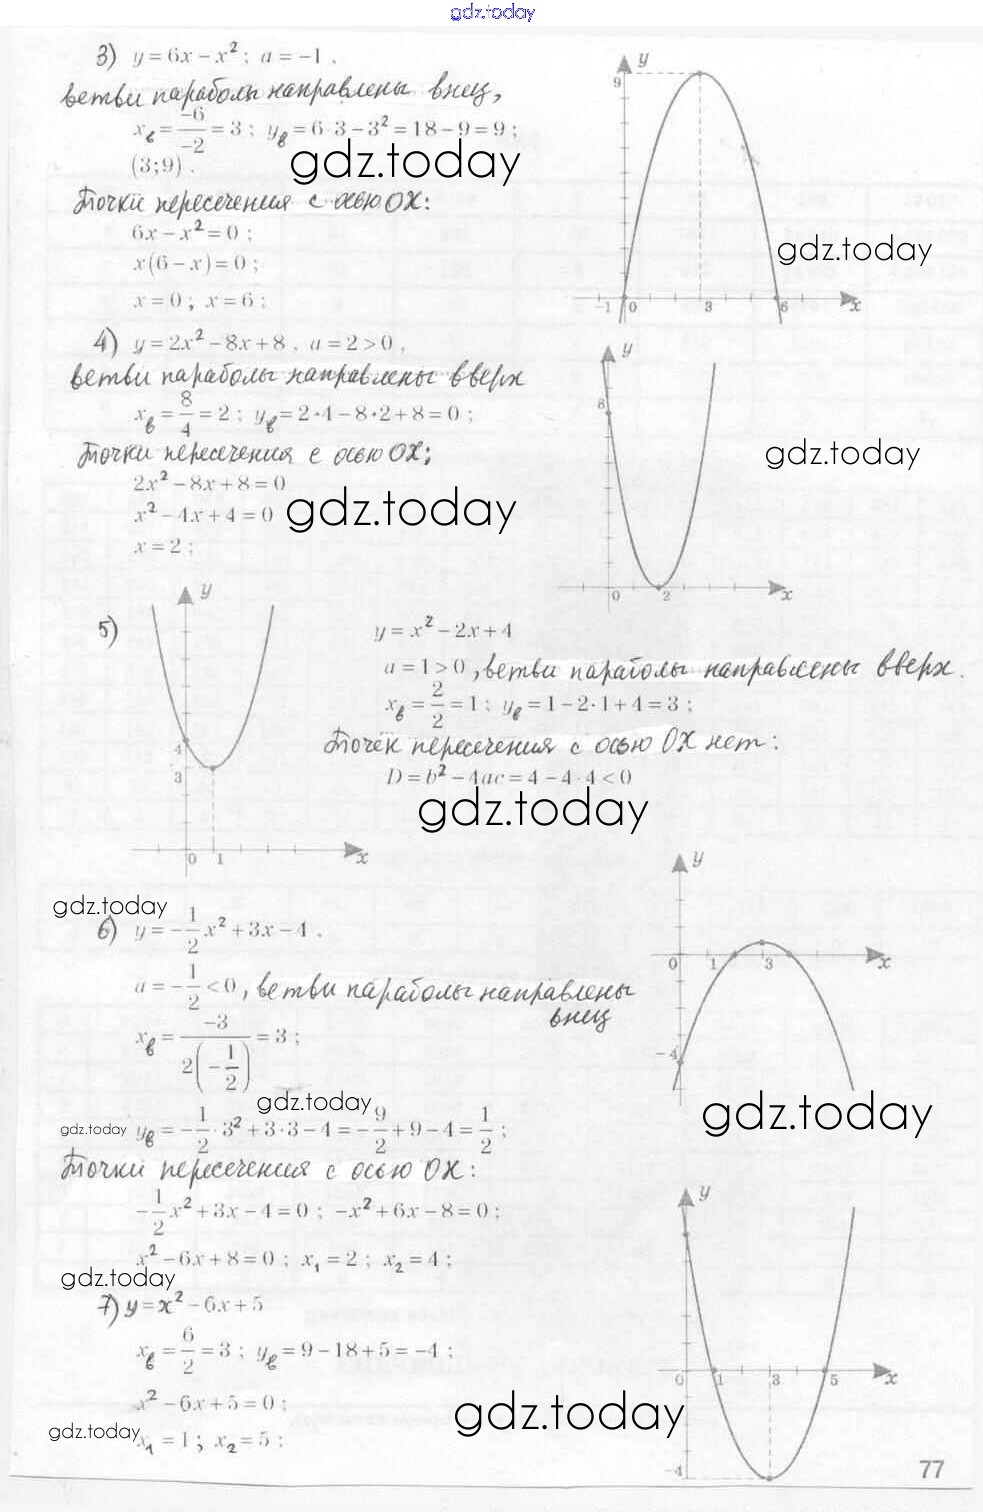 gdz.today
3) y = 6x − x²; a = −1.
ветви параболы направлены вниз,
xв = −6/−2 = 3; yв = 6·3 − 3² = 18 − 9 = 9;
(3;9).
gdz.today
Точки пересечения с осью OX:
6x − x² = 0;
x(6 − x) = 0;
x = 0; x = 6;
y
9
gdz.today
−1 0 3 6 x
4) y = 2x² − 8x + 8, a = 2 > 0,
ветви параболы направлены вверх
xв = 8/4 = 2; yв = 2·4 − 8·2 + 8 = 0;
Точки пересечения с осью OX:
2x² − 8x + 8 = 0
x² − 4x + 4 = 0
gdz.today
x = 2;
y
8
gdz.today
0 2 x
5)
y
4
3
0 1 x
y = x² − 2x + 4
a = 1 > 0, ветви параболы направлены вверх.
xв = 2/2 = 1; yв = 1 − 2·1 + 4 = 3;
Точек пересечения с осью OX нет:
D = b² − 4ac = 4 − 4·4 < 0
gdz.today
gdz.today
6) y = −1/2 x² + 3x − 4.
a = −1/2 < 0, ветви параболы направлены
вниз
xв = −3/2(−1/2) = 3;
gdz.today
gdz.today
yв = −1/2·3² + 3·3 − 4 = −9/2 + 9 − 4 = 1/2;
Точки пересечения с осью OX:
−1/2 x² + 3x − 4 = 0; −x² + 6x − 8 = 0;
x² − 6x + 8 = 0; x₁ = 2; x₂ = 4;
gdz.today
y
0 1 3 x
−4
gdz.today
7) y = x² − 6x + 5
xв = 6/2 = 3; yв = 9 − 18 + 5 = −4;
x² − 6x + 5 = 0;
gdz.today
x₁ = 1; x₂ = 5;
gdz.today
y
0 1 3 5 x
−4
77